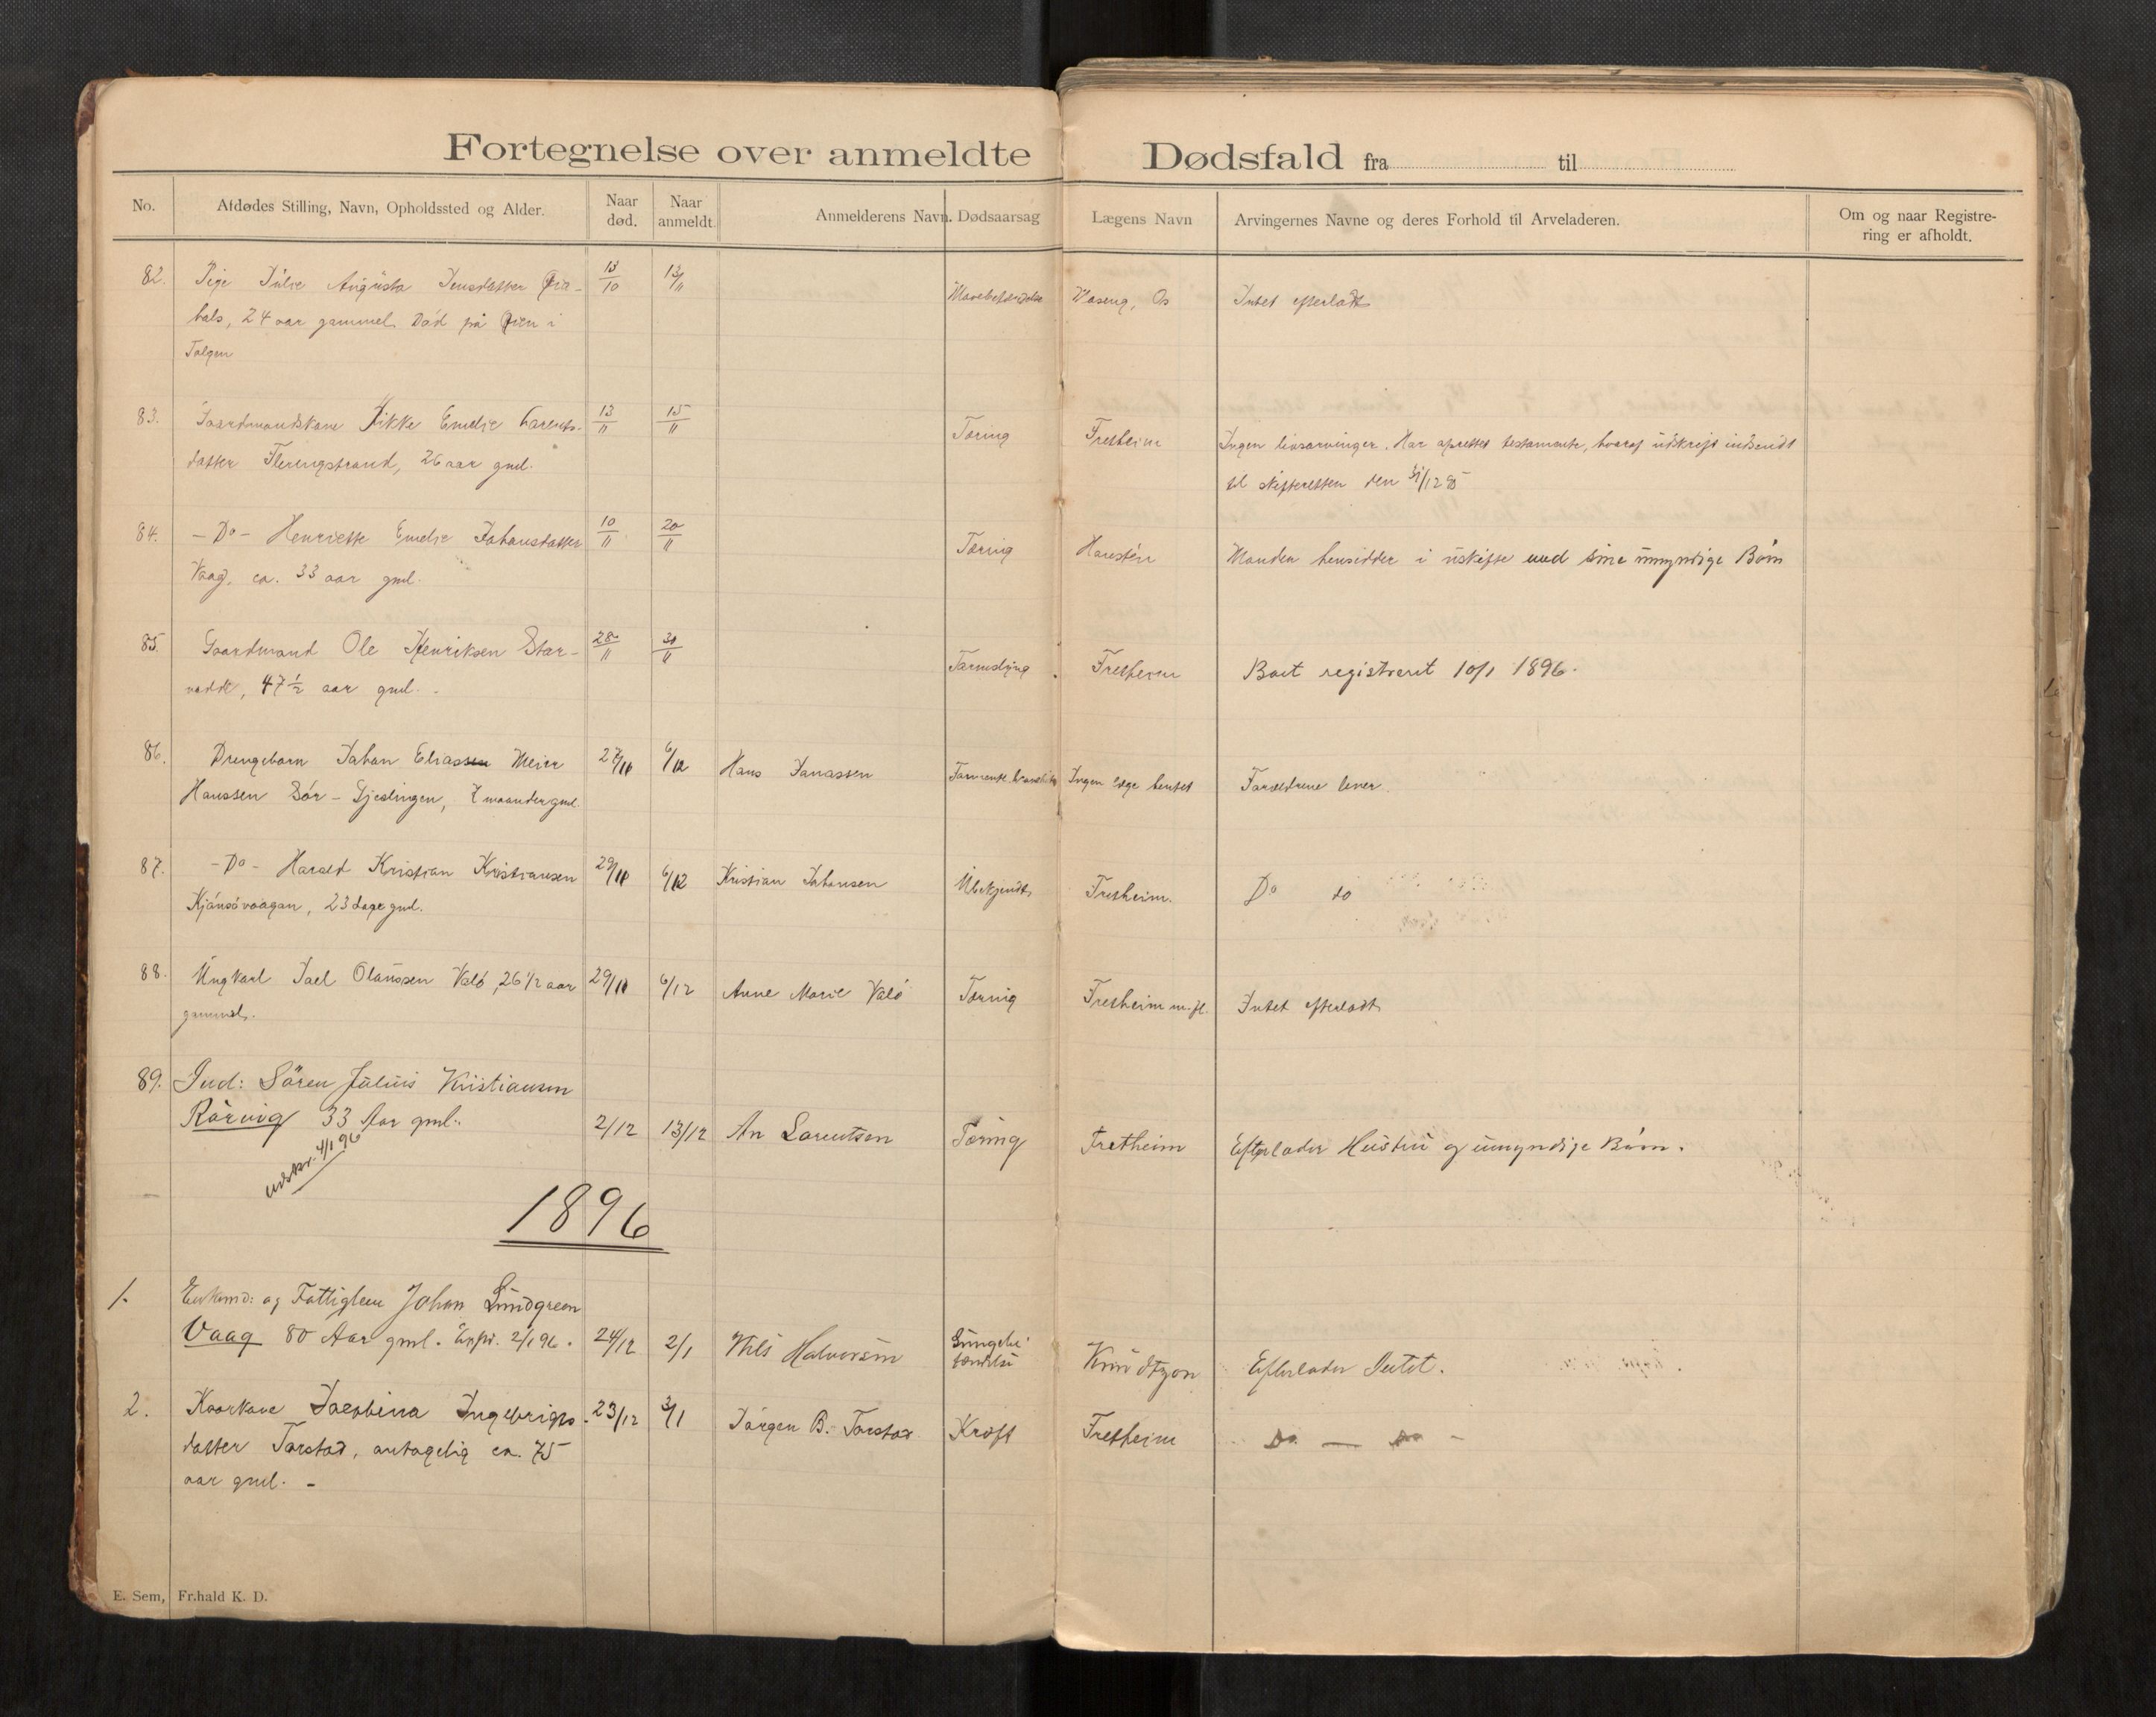 Fortegnelse over anmeldte Dødsfald fra til
No. Afdødes Stilling, Navn, Opholdssted og Alder. Naar død. Naar anmeldt. Anmelderens Navn. Dødsaarsag Lægens Navn Arvingernes Navne og deres Forhold til Arveladeren. Om og naar Registrering er afholdt.
82. Pige Julie Augusta Jensdatter 13/10 13/11 Mavebetændelse Os Intet efterladt
hals, 24 aar gammel. Død på i
Tolgen
83. Gaardmandskone Rikke Emelie Larents- 13/11 15/11 Tæring Fretheim Ingen livsarvinger. Har oprettet testamente, hvoraf udskrift indsendt
datter Flerengstrand, 26 aar gml. til skifteretten den 31/12 95
84. - Do - Henriette Emelie Johansdatter 10/11 20/11 Tæring Hansten Manden hensidder i uskifte med sine umyndige Børn
Vaag, ca. 33 aar gml.
85. Gaardmand Ole Henriksen Stor- 28/11 30/11 Tarmslyng Fretheim Boet registreret 10/1 1896.
47½ aar gml.
86. Drengebarn Johan Eliassen Meier 27/11 6/12 Hans Jonassen Ingen læge hentet Forældrene lever.
Hanssen Sør-Gjeslingen, 7 maander gml.
87. - Do - Harald Kristian Kristiansen 29/11 6/12 Kristian Johansen Ubekjendt Fretheim. Do do
Kjønsøvaagan, 23 dage gml.
88. Ungkarl Joel Olaussen Valø, 26 1/2 aar 29/11 6/12 Anne Marie Valø Tæring Fretheim m.fl. Intet efterladt
gammel.
89. Ind: Sören Julius Kristiansen
Rörvig 33 Aar gml. 2/12 13/12 An Lorentsen Tæring Fretheim Efterlader Hustru og umyndige Børn.
udskr. 4/1 96
1896
1. Enkemd: og Fattiglem Johan Lindgreen
Vaag 80 Aar gml. Expr. 2/1 96. 24/12 2/1 Nils Halvorsen Lungebetændelse Knudtzon Efterlader Intet.
2. Kaarkone Jacobina Ingebrigts- 23/12 3/1 Jørgen B. Torstad Kræft Fretheim Do - Do -
datter Torstad, antagelig ca. 75
aar gml. -
E. Sem, Fr.hald K. D.